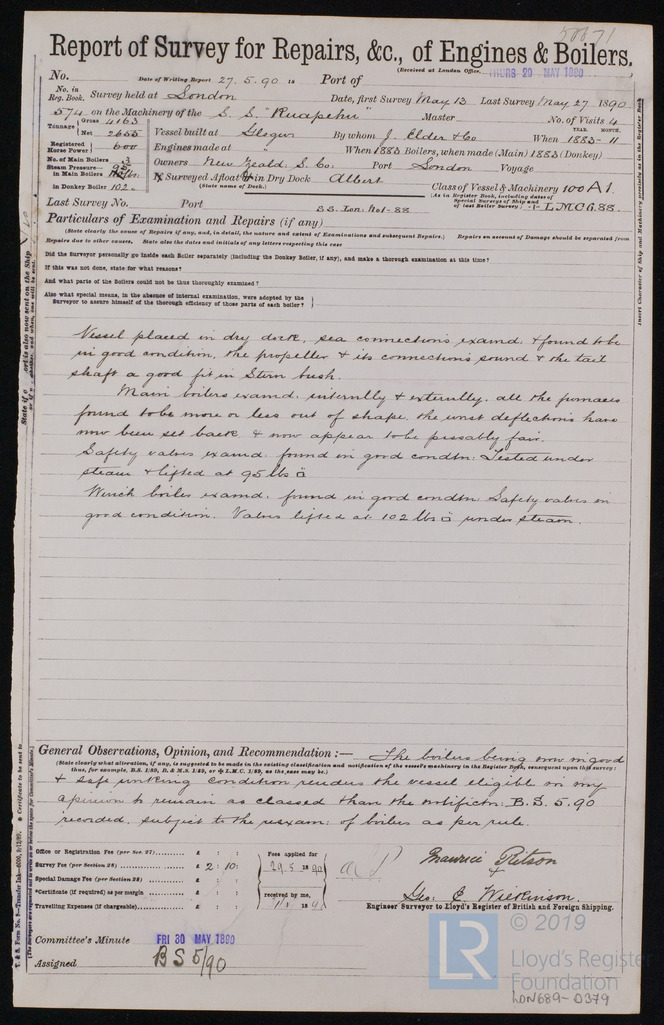 50071
Report of Survey for Repairs, &c., of Engines & Boilers.
(Received at London Office, THURS 29 MAY 1890)
No. Date of Writing Report 27.5.90 18 Port of
No. in Reg. Book. Survey held at London Date, first Survey May 13 Last Survey May 27 1890
574 on the Machinery of the S.S. "Ruapehu" Master No. of Visits 4
Tonnage Gross 4163
Net 2655
Vessel built at Glasgow By whom J. Elder & Co When 1883 - 11
YEAR. MONTH.
Registered Horse Power 600
Engines made at " When 1883 Boilers, when made (Main) 1883 (Donkey)
No. of Main Boilers 3
Owners New Zeald. S. Co. Port London Voyage
Steam Pressure in Main Boilers 95
in Donkey Boiler 102
If Surveyed Afloat or in Dry Dock Albert
(State name of Dock.)
Class of Vessel & Machinery 100A1.
(As in Register Book, including dates of Special Surveys of Ship and of last Boiler Survey.) LMC 6.88.
Last Survey No. Port SS. Lon. No1-88
Particulars of Examination and Repairs (if any)
(State clearly the cause of Repairs if any, and, in detail, the nature and extent of Examinations and subsequent Repairs.) Repairs on account of Damage should be separated from
Repairs due to other causes. State also the dates and initials of any letters respecting this case
Did the Surveyor personally go inside each Boiler separately (including the Donkey Boiler, if any), and make a thorough examination at this time?
If this was not done, state for what reasons?
And what parts of the Boilers could not be thus thoroughly examined?
Also what special means, in the absence of internal examination, were adopted by the Surveyor to assure himself of the thorough efficiency of those parts of each boiler?
Vessel placed in dry dock, sea connections examd. & found to be
in good condition, the propeller & its connections sound & the tail
shaft a good fit in Stern bush.
Main boilers examd. internally & externally. all the furnaces
found to be more or less out of shape, the worst deflections have
now been set back & now appear to be passably fair.
Safety valves examd. found in good condtn: Tested under
steam & lifted at 95 lbs □
Winch boiler examd. found in good condtn: Safety valves in
good condition. Valves lifted at 102 lbs □ under steam.
General Observations, Opinion, and Recommendation :— The boilers being now in good
(State clearly what alteration, if any, is suggested to be made in the existing classification and notification of the vessel's machinery in the Register Book, consequent upon this survey: thus, for example, B.S. 1/89, B. & M.S. 1/89, or L.M.C. 1/89, as the case may be.)
& safe working condition renders the vessel eligible in my
opinion to remain as classed & have the notificatn: B.S. 5.90
recorded. subject to the reexam: of boilers as per rule.
Office or Registration Fee (per Sec. 27) £ : :
Survey Fee (per Section 28) £ 2 : 10 :
Special Damage Fee (per Section 28) £ : :
Certificate (if required) as per margin £ : :
Travelling Expenses (if chargeable) £ : :
Fees applied for
29.5.1890
received by me,
Maurice Ritson
&
Geo: E Wilkinson.
Engineer Surveyor to Lloyd's Register of British and Foreign Shipping.
Committee's Minute FRI 30 MAY 1890
Assigned BS 5/90
© 2019
LR
Lloyd's Register
Foundation
LON689-0379
Insert Character of Ship and Machinery precisely as in the Register Book